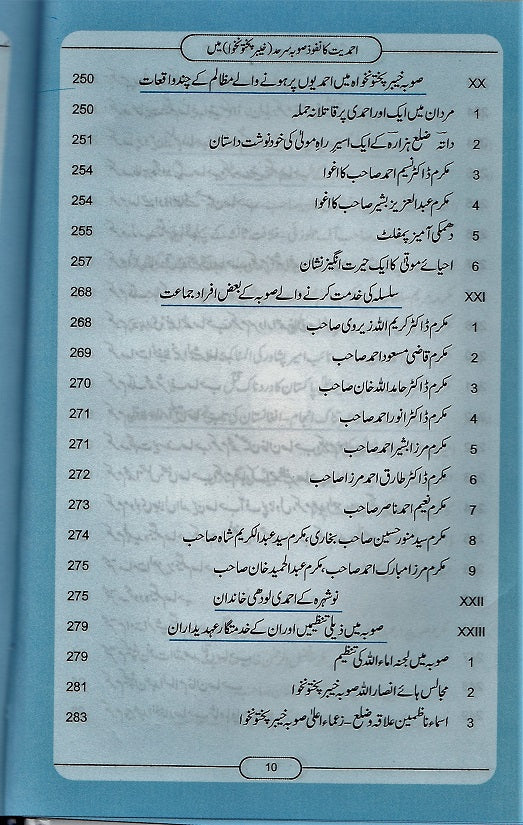 احمدیت کا نفوذ صوبہ سرحد (خیبر پختونخوا) میں
XX صوبہ خیبر پختونخواہ میں احمدیوں پر ہونے والے مظالم کے چند واقعات 250
1 مردان میں ایک اور احمدی پر قاتلانہ حملہ 250
2 داتہ ضلع ہزارہ کے ایک اسیر راہ مولیٰ کی خودنوشت داستان 251
3 مکرم ڈاکٹر نسیم احمد صاحب کا اغوا 254
4 مکرم عبدالعزیز بشیر صاحب کا اغوا 254
5 دھمکی آمیز پمفلٹ 255
6 احیائے موتی کا ایک حیرت انگیز نشان 257
XXI سلسلہ کی خدمت کرنے والے صوبہ کے بعض افراد جماعت 268
1 مکرم ڈاکٹر کریم اللہ زیروی صاحب 268
2 مکرم قاضی مسعود احمد صاحب 269
3 مکرم ڈاکٹر حامد اللہ خان صاحب 270
4 مکرم ڈاکٹر انور احمد صاحب 271
5 مکرم مرزا بشیر احمد صاحب 271
6 مکرم ڈاکٹر طارق احمد مرزا صاحب 272
7 مکرم نعیم احمد ناصر صاحب 273
8 مکرم سید منور حسین صاحب بخاری، مکرم سید عبدالکریم شاہ صاحب 274
9 مکرم مرزا مبارک احمد صاحب، مکرم عبدالحمید خان صاحب 275
XXII نوشہرہ کے احمدی لودھی خاندان 275
XXIII صوبہ میں ذیلی تنظیمیں اور ان کے خدمتگار عہدیداران 279
1 صوبہ میں لجنہ اماء اللہ کی تنظیم 279
2 مجالس ہائے انصار اللہ صوبہ خیبر پختونخوا 281
3 اسماء ناظمین علاقہ و ضلع - زعماء اعلیٰ صوبہ خیبر پختونخوا 283
10